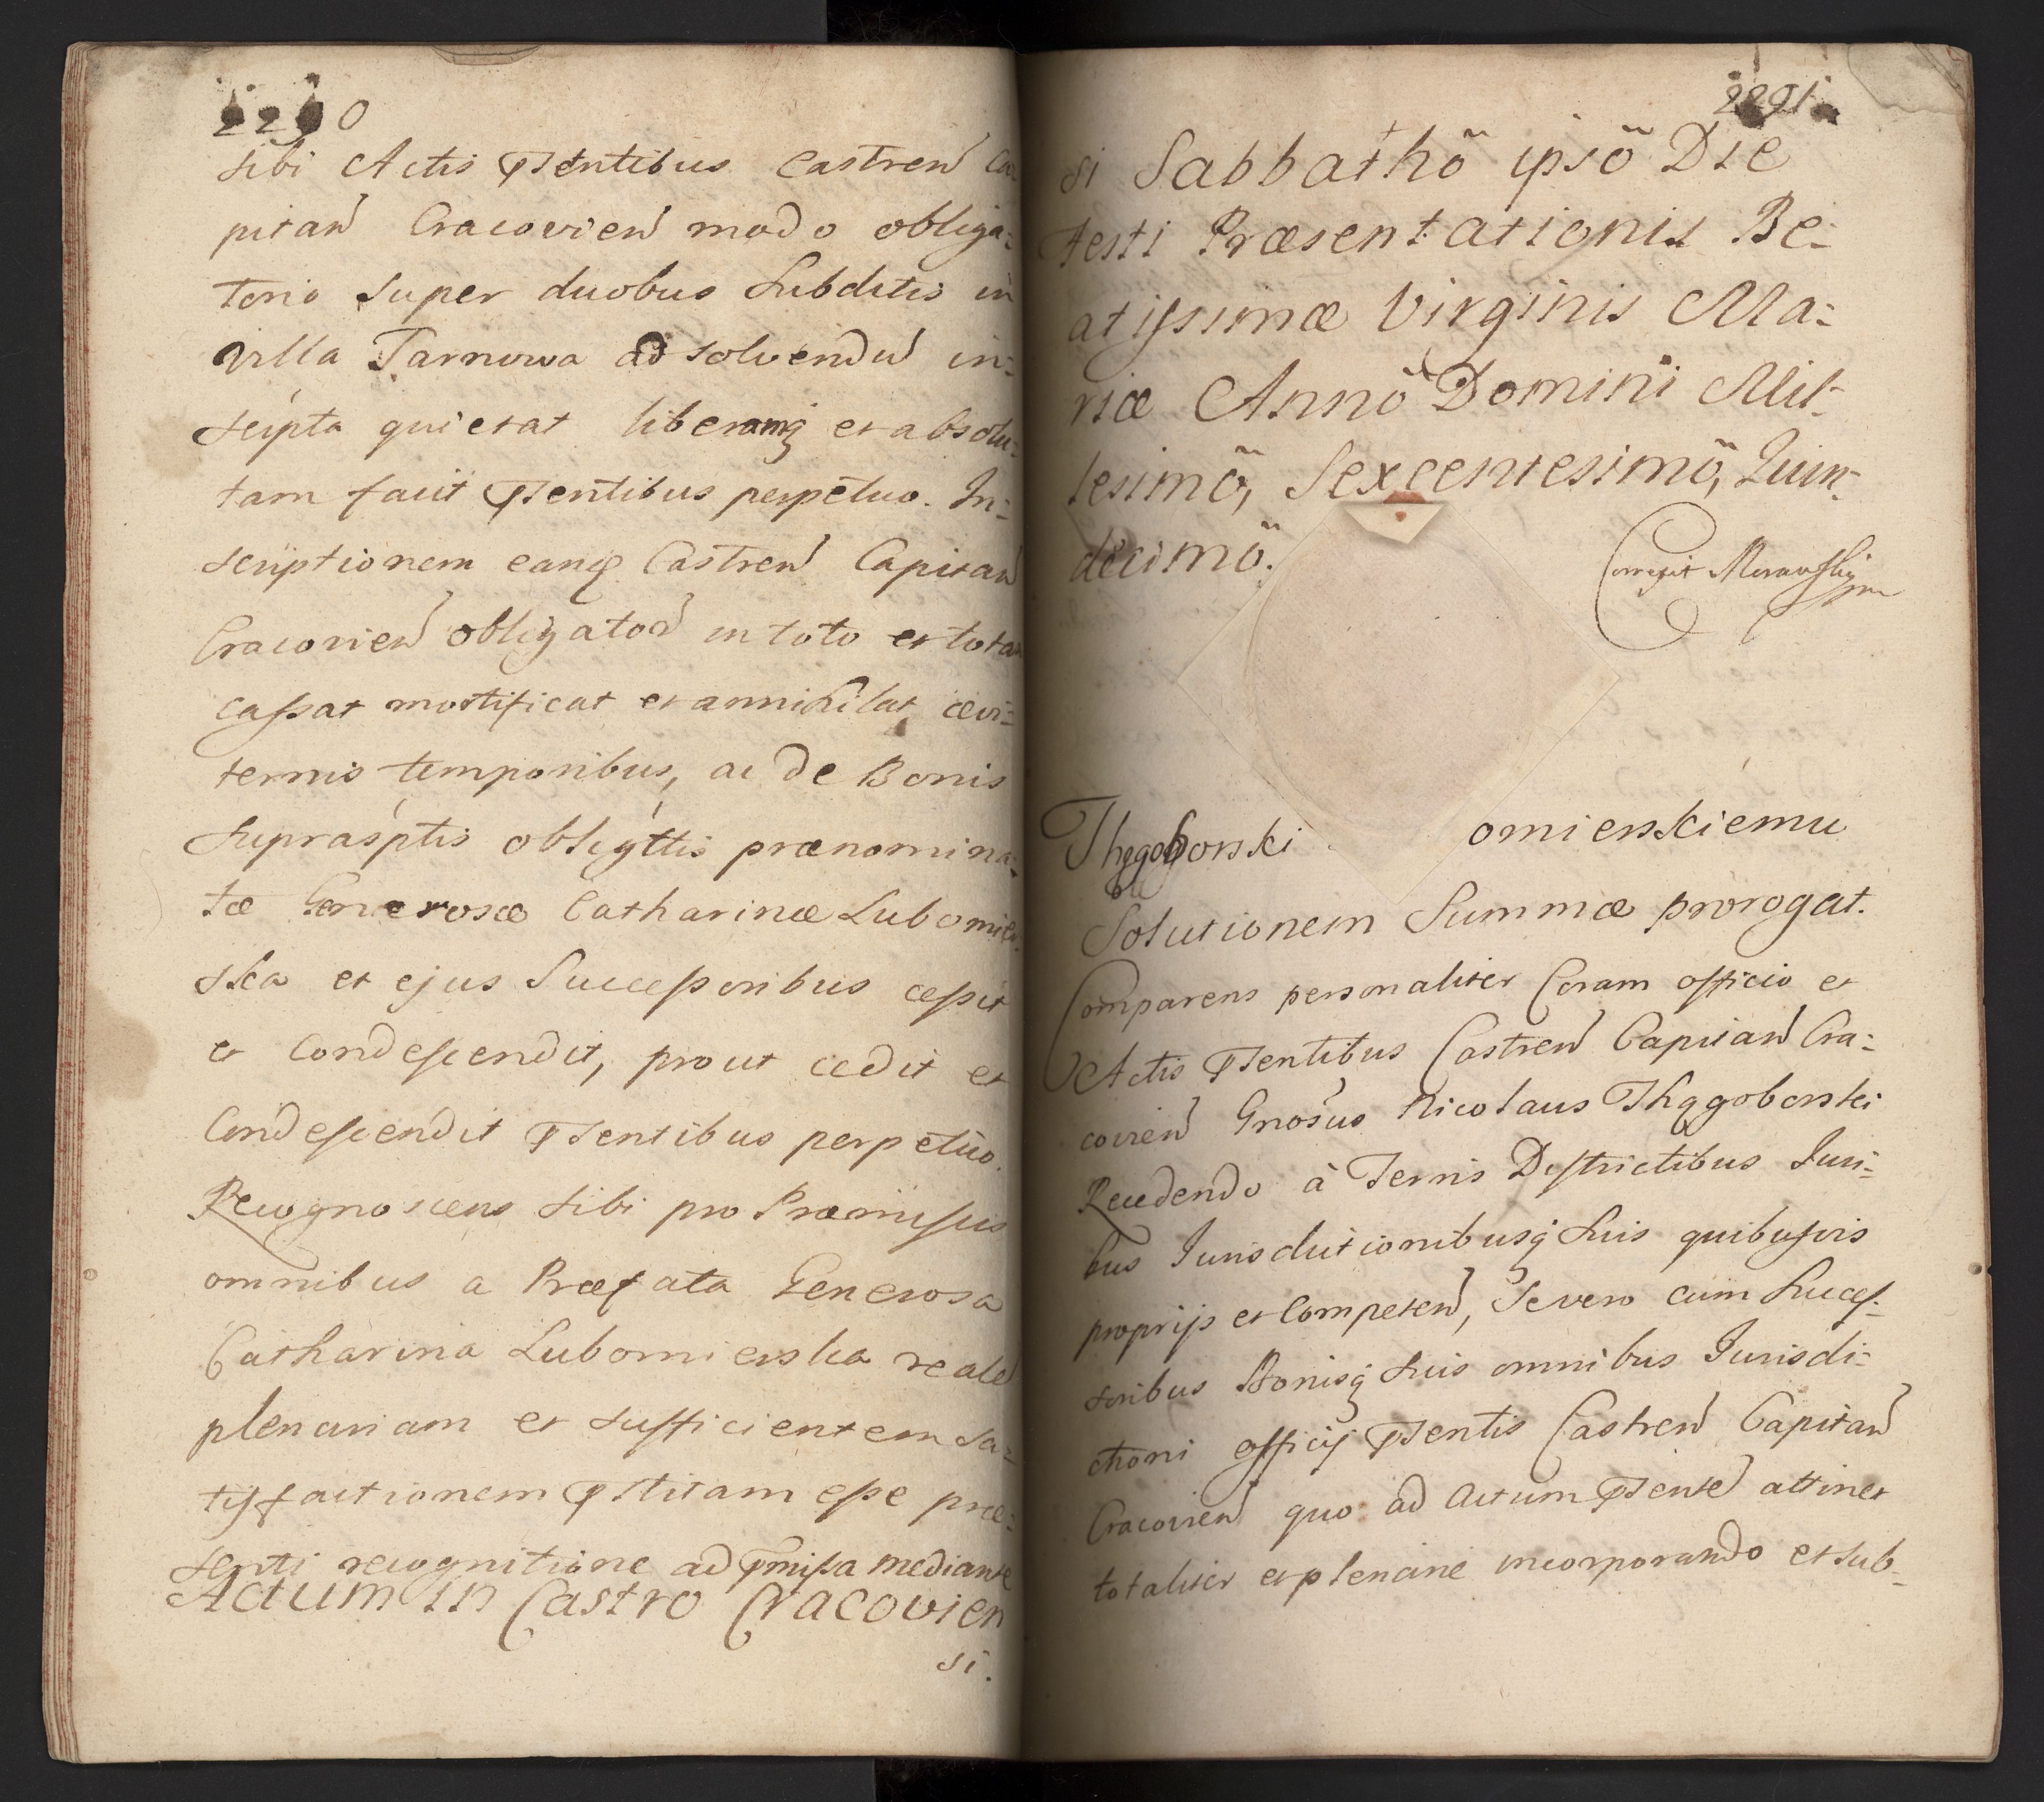 2290
sibi Actis pñtentibus Castren Ca-
pitan Cracovien modo obliga-
torio super duobus Subditis in
Villa Tarnowa ad solvendu in-
scripta quietat liberamq et absolu-
tam facit pñtentibus perpetuo. In-
scriptionem eamq Castren Capitan
Cracovien obligator in toto et tota
cassat mortificat et annihilat ævi-
ternis temporibus, ac de Bonis
supraspt̃is obligt̃tis prænomina-
tæ Generosæ Catharinæ Lubomier-
ska et ejus Successoribus cessit
et condescendit, prout cedit et
Condescendit pñtentibus perpetuo.
Recognoscens sibi pro Præmissis
omnibus a Præfata Generosa
Catharina Lubomierska reale
plenariam et sufficientem sa-
tisfactionem pstitam esse præ-
senti recognitione ad pmissa mediante
Actum in Castro Cracovien
si.
2291
si Sabbathõ ipsõ Die
Festi Præsentationis Be-
atissimæ Virginis Ma-
riæ Annõ Domini Mil-
lesimõ, Sexcentesimõ, Quin-
decimõ.
Correxit Morawski mp
Thęgoborski omierskiemu
Solutionem Summæ prorogat.
Comparens personaliter Coram officio et
Actis pñtentibus Castren Capitan Cra-
covien Gnosus Nicolaus Thęgoborski
Recedendo à Terris Districtibus Juri-
bus Jurisdictionibusq suis quibusvis
proprijs et Competen, Se vero cum succes-
soribus Bonisq suis omnibus Jurisdi-
ctioni officij pñtentis Castren Capitan
Cracovien quo ad Actum pñtente attinet
totaliter et plenarie incorporando et sub-